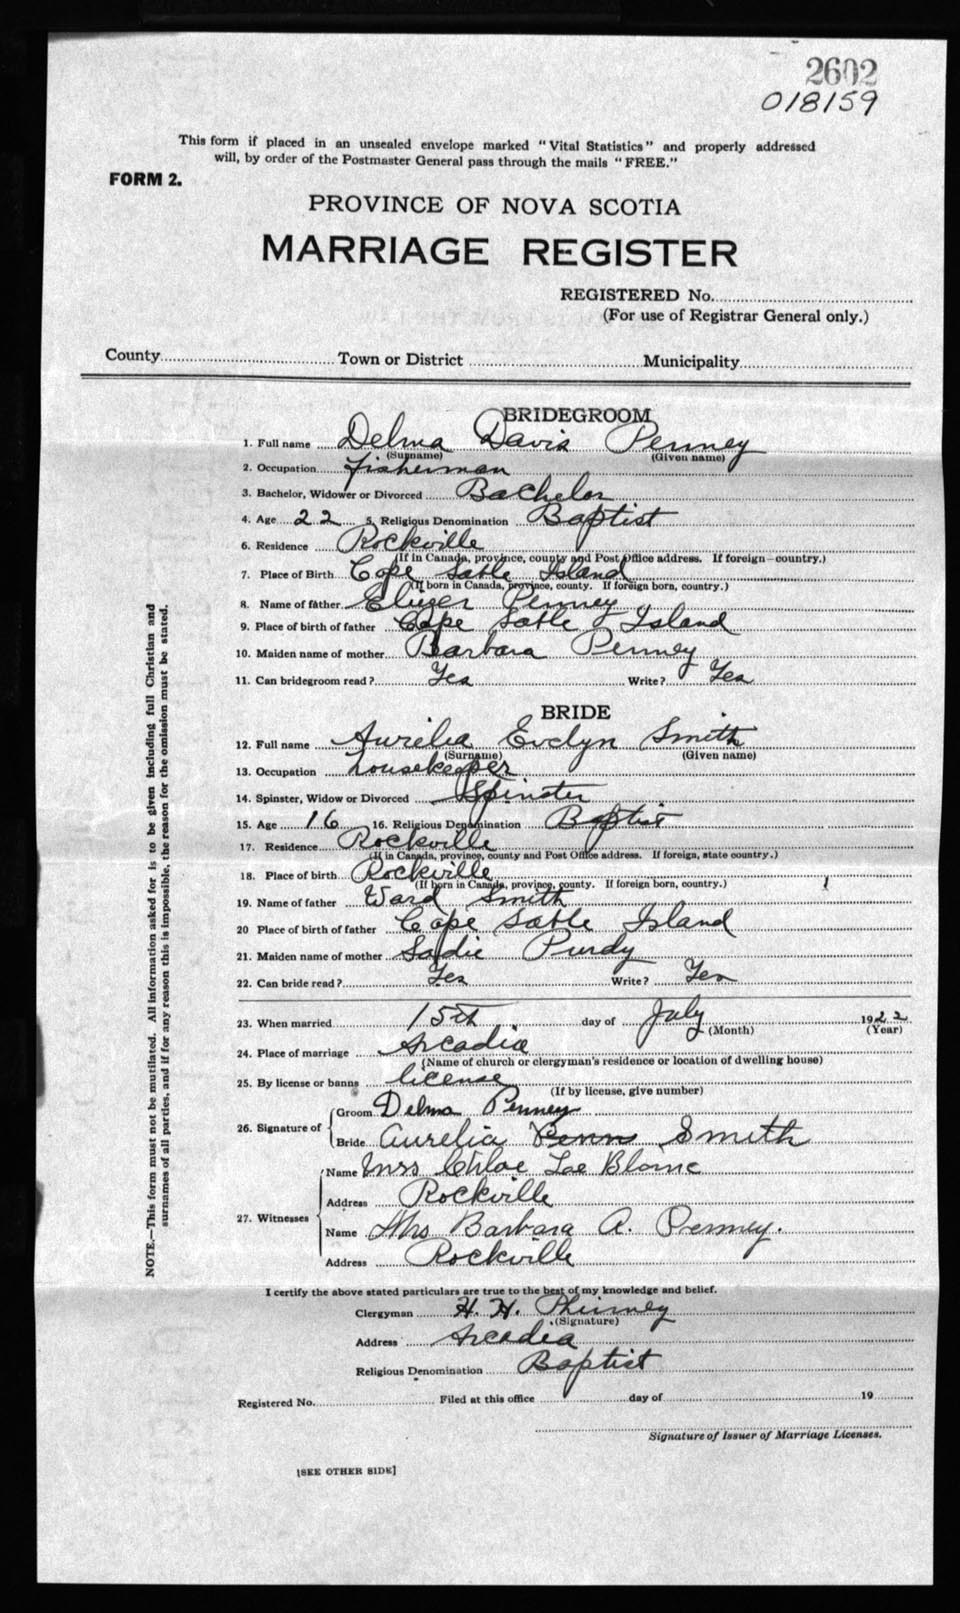 2602
018159
This form if placed in an unsealed envelope marked "Vital Statistics" and properly addressed
will, by order of the Postmaster General pass through the mails "FREE."
FORM 2.
PROVINCE OF NOVA SCOTIA
MARRIAGE REGISTER
REGISTERED No.
(For use of Registrar General only.)
County Town or District Municipality
BRIDEGROOM
1. Full name Delma Davis Penney
(Surname) (Given name)
2. Occupation fisherman
3. Bachelor, Widower or Divorced Bachelor
4. Age 22 5. Religious Denomination Baptist
6. Residence Rockville
(If in Canada, province, county and Post Office address. If foreign—country.)
7. Place of Birth Cape Sable Island
(If born in Canada, province, county. If foreign born, country.)
8. Name of father Eliezer Penney
9. Place of birth of father Cape Sable Island
10. Maiden name of mother Barbara Penney
11. Can bridegroom read? Yes Write? Yes
BRIDE
12. Full name Aurelia Evelyn Smith
(Surname) (Given name)
13. Occupation housekeeper
14. Spinster, Widow or Divorced Spinster
15. Age 16 16. Religious Denomination Baptist
17. Residence Rockville
(If in Canada, province, county and Post Office address. If foreign, state country.)
18. Place of birth Rockville
(If born in Canada, province, county. If foreign born, country.)
19. Name of father Ward Smith
20 Place of birth of father Cape Sable Island
21. Maiden name of mother Sadie Purdy
22. Can bride read? Yes Write? Yes
23. When married 15th day of July 1922
(Month) (Year)
24. Place of marriage Arcadia
(Name of church or clergyman's residence or location of dwelling house)
25. By license or banns license
(If by license, give number)
26. Signature of
Groom Delma Penney
Bride Aurelia Smith
27. Witnesses
Name Mrs Chloe Blaine
Address Rockville
Name Mrs Barbara A. Penney.
Address Rockville
I certify the above stated particulars are true to the best of my knowledge and belief.
Clergyman H. H. Phinney
(Signature)
Address Arcadia
Religious Denomination Baptist
Registered No. Filed at this office day of 19
Signature of Issuer of Marriage Licenses.
[SEE OTHER SIDE]
NOTE.—This form must not be mutilated. All information asked for is to be given including full Christian and
surnames of all parties, and if for any reason this is impossible, the reason for the omission must be stated.